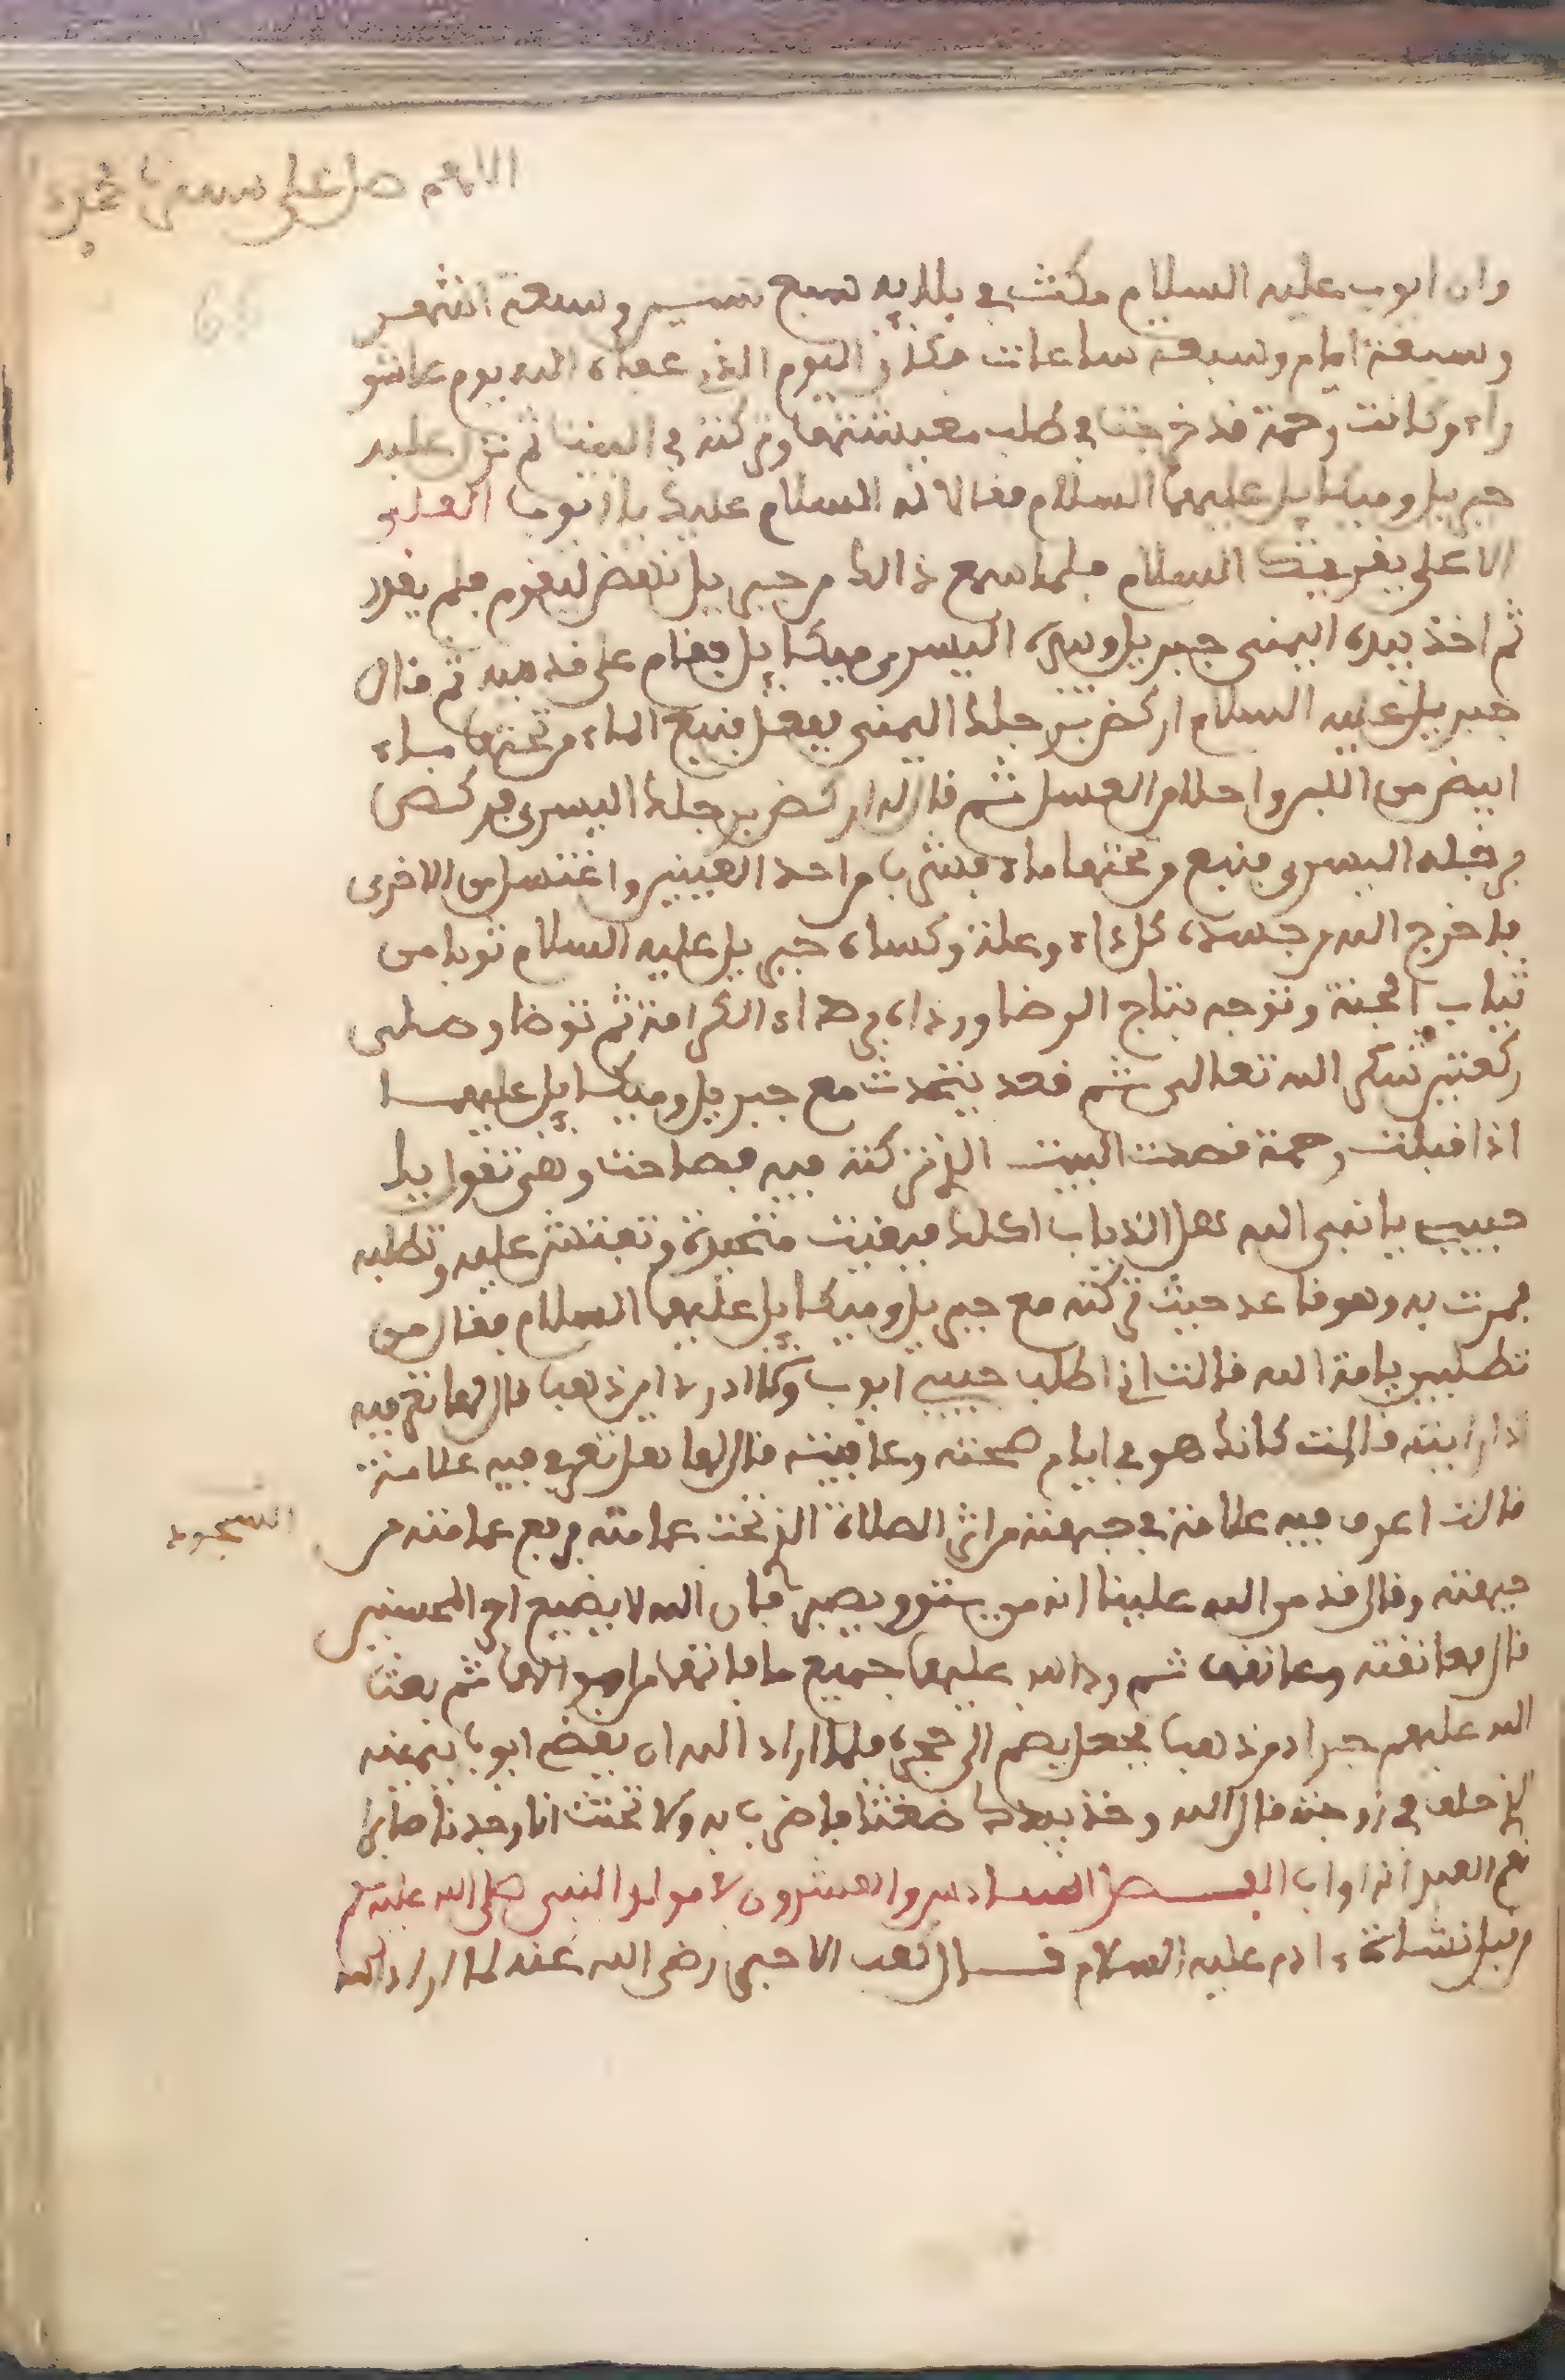 اللاهم صل على سيدنا محمد
66
وان ايوب عليه السلام مكث في بلايه سبع سنين وسبعة اشهر
وسبعة ايام وسبعة ساعات فكان اليوم الذي عافاه الله يوم عاشو
راء وكانت رحمة قد خرجت في طلب معيشتها وتركته في البيت ثم نزل عليه
جبريل وميكاييل عليهما السلام فقالا له السلام عليك يا ايوب العلي
الاعلى يقريك السلام فلما سمع ذالك من جبريل نهض ليقوم فلم يقدر
ثم اخذ بيده اليمنى جبريل وبيده اليسرى ميكاييل فقام على قدميه ثم قال
جبريل عليه السلام اركض برجلك اليمنى ففعل فنبع الماء من تحتها ماء
ابيض من اللبن واحلا من العسل ثم قال له اركض برجلك اليسرى فركض
برجله اليسرى فنبع من تحتها ماء فشرب من احد العينين واغتسل من الاخرى
فاخرج الله من جسده كل داء وعلة وكساه جبريل عليه السلام ثوبا من
ثياب الجنة وتوجه بتاج الرضا ورداه برداء الكرامة ثم توضا وصلى
ركعتين شكر الله تعالى ثم قعد يتحدث مع جبريل وميكاييل عليهما
اذ اقبلت رحمة فصدت البيت الذي تركته فيه فصاحت وهي تقول يا
حبيبي يا نبي الله هل الذياب اكلك فبقيت متحيرة وتفتش عليه وتطلبه
فمرت به وهو قاعد حيث تركته مع جبريل وميكاييل عليهما السلام فقال من
تطلبين يا امة الله قالت اني اطلب حبيبي ايوب ولا ادري اين ذهب قال لها تعرفيه
اذا رايته قالت كانك هو في ايام صحته وعافيته قال لها هل تعرفي فيه علامة
قالت اعرف فيه علامة في جبهته من اثر الصلاة الذي تحت عمامته فرفع عمامته من
السجود
جبهته وقال قد من الله علينا انه من يتق ويصبر فان الله لا يضيع اجر المحسنين
قال فعانقته وعانقها ثم رد الله عليهما جميع ما فاتهما من اموالهما ثم بعث
الله عليهم جرادا من ذهب فجعل يضم الى حجره فلما اراد الله ان يقض ايوب يمينه
الذي حلف في زوجته قال الله وخذ بيدك ضغثا فاضرب به ولا تحنث انا وجدناه صابرا
نعم العبد انه اواب الفصل السادس والعشرون لامولد النبي صلى الله عليه وسلم
وقبل نشاة ءادم عليه السلام قال كعب الاحبر رضي الله عنه لما اراد الله